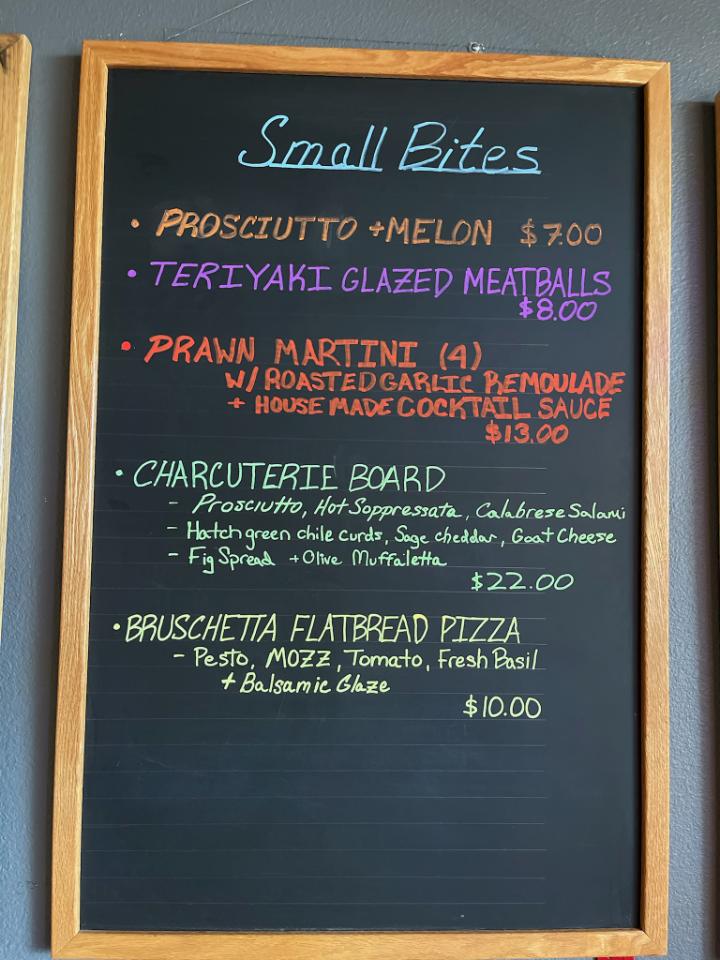 Small Bites
• PROSCIUTTO + MELON $7.00
• TERIYAKI GLAZED MEATBALLS
$8.00
• PRAWN MARTINI (4)
W/ ROASTED GARLIC REMOULADE
+ HOUSE MADE COCKTAIL SAUCE
$13.00
• CHARCUTERIE BOARD
- Prosciutto, Hot Soppressata, Calabrese Salami
- Hatch green chile curds, Sage cheddar, Goat Cheese
- Fig Spread + Olive Muffaletta
$22.00
• BRUSCHETTA FLATBREAD PIZZA
- Pesto, MOZZ, Tomato, Fresh Basil
+ Balsamic Glaze
$10.00